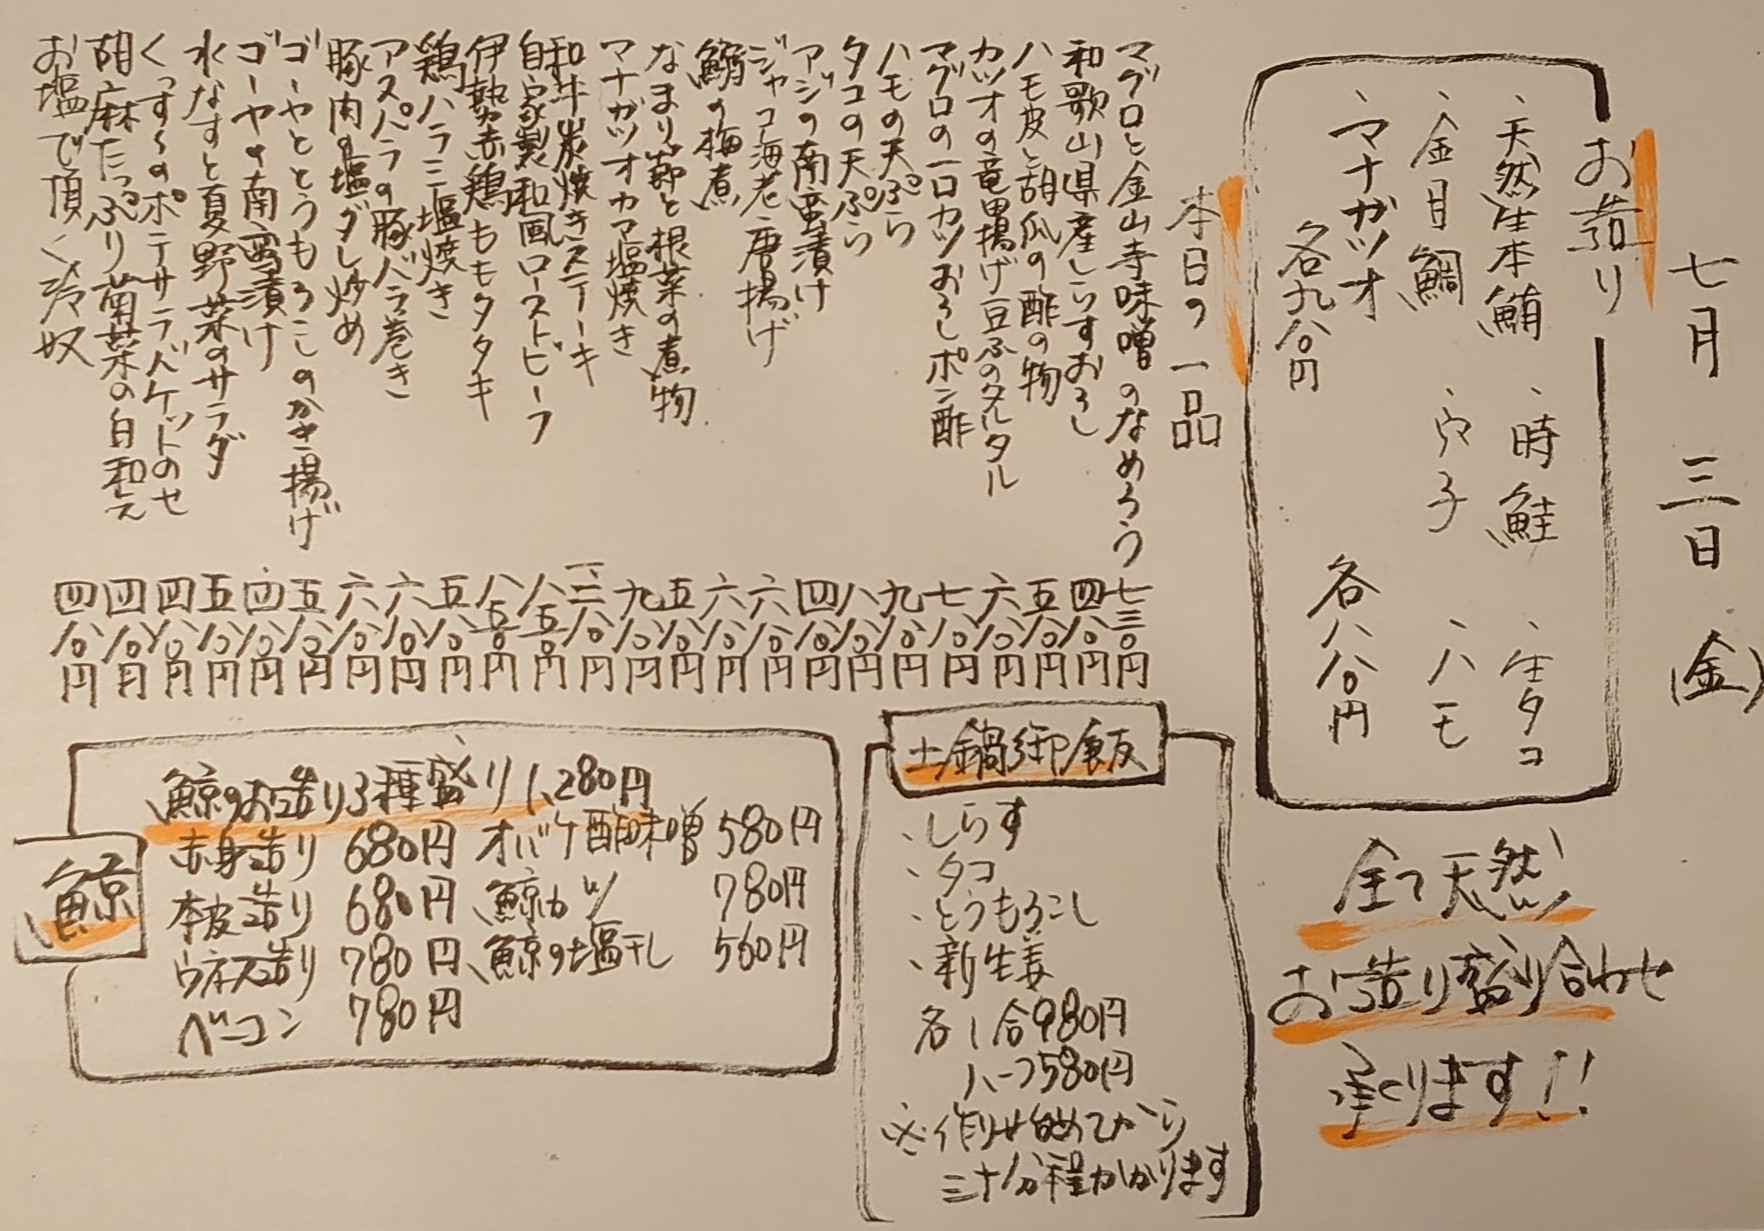 七月三日(金)
お造り
、天然生本鮪 、時鮭 、生タコ
、金目鯛 、穴子 、ハモ
、マナガツオ
各九八〇円 各八八〇円
全て天然
お造り盛り合わせ
承ります!!
本日の一品
マグロと金山寺味噌のなめろう 七三〇円
和歌山県産しらすおろし 四八〇円
ハモ皮と胡瓜の酢の物 五八〇円
カツオの竜田揚げ豆ふのタルタル 六八〇円
マグロの一口カツおろしポン酢 七八〇円
ハモの天ぷら 九八〇円
タコの天ぷら 八八〇円
アジの南蛮漬け 四八〇円
ジャコ海老唐揚げ 六八〇円
鰯の梅煮 六八〇円
なまり節と根菜の煮物 五八〇円
マナガツオカマ塩焼き 九八〇円
和牛炭焼きステーキ 一、二八〇円
自家製和風ローストビーフ 八五〇円
伊勢赤鶏ももタタキ 八五〇円
鶏ハラミ塩焼き 五八〇円
アスパラの豚バラ巻き 六八〇円
豚肉の塩ダレ炒め 六八〇円
ゴーヤととうもろこしのかき揚げ 五八〇円
ゴーヤの南蛮漬け 四八〇円
水なすと夏野菜のサラダ 五八〇円
くっす〜のポテサラバケットのせ 四八〇円
胡麻たっぷり菊菜の白和え 四八〇円
お塩で頂く冷奴 四八〇円
土鍋御飯
、しらす
、タコ
、とうもろこし
、新生姜
各1合980円
ハーフ580円
※作り始めてから
三十分程かかります
鯨
鯨のお造り3種盛り1,280円
赤身造り 680円 オバケ酢味噌 580円
本皮造り 680円 鯨カツ 780円
ウネス造り 780円 鯨の塩干し 560円
ベーコン 780円